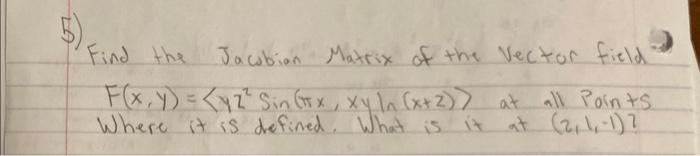 5)
Find the Jacobian Matrix of the Vector field
F(x,y) = <yz² Sin(πx, xy ln(x+2)> at all Points
Where it is defined. What is it at (2,1,-1)?